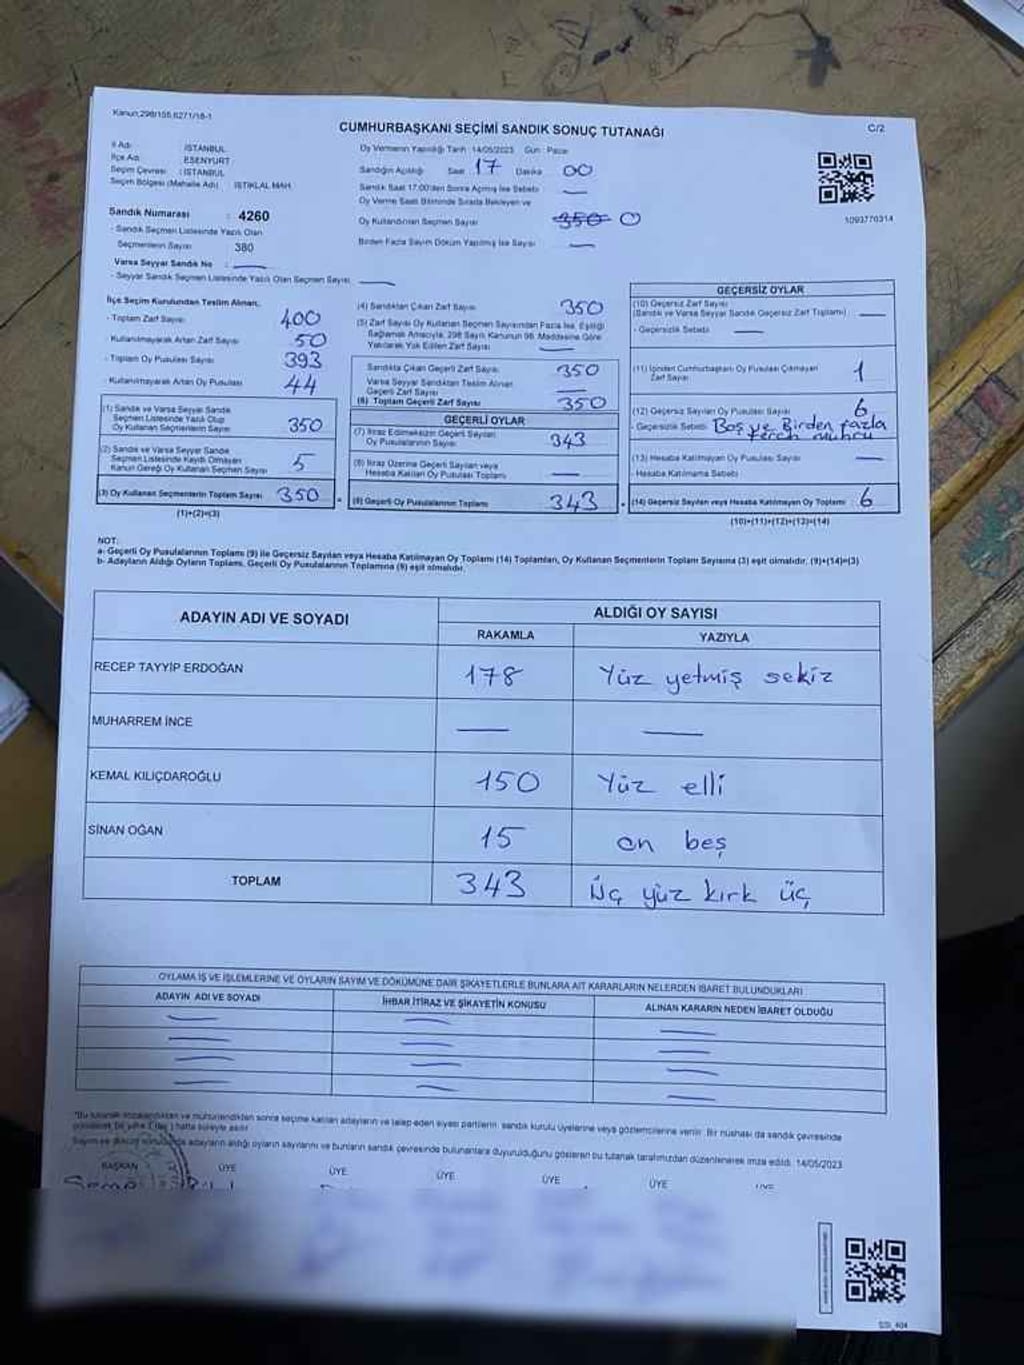 Kanun:298/155,6271/18-1
C/2
CUMHURBAŞKANI SEÇİMİ SANDIK SONUÇ TUTANAĞI
İl Adı : İSTANBUL
İlçe Adı : ESENYURT
Seçim Çevresi : İSTANBUL
Seçim Bölgesi (Mahalle Adı) : İSTİKLAL MAH.
Sandık Numarası : 4260
- Sandık Seçmen Listesinde Yazılı Olan
Seçmenlerin Sayısı 380
Varsa Seyyar Sandık No :
- Seyyar Sandık Seçmen Listesinde Yazılı Olan Seçmen Sayısı
Oy Vermenin Yapıldığı Tarih : 14/05/2023 Gün : Pazar
Sandığın Açıldığı Saat 17 Dakika 00
Sandık Saat 17:00'den Sonra Açılmış İse Sebebi
Oy Verme Saati Bitiminde Sırada Bekleyen ve
Oy Kullandırılan Seçmen Sayısı 350 0
Birden Fazla Sayım Döküm Yapılmış İse Sayısı
1093770314
İlçe Seçim Kurulundan Teslim Alınan;
- Toplam Zarf Sayısı 400
- Kullanılmayarak Artan Zarf Sayısı 50
- Toplam Oy Pusulası Sayısı 393
- Kullanılmayarak Artan Oy Pusulası 44
(1) Sandık ve Varsa Seyyar Sandık
Seçmen Listesinde Yazılı Olup
Oy Kullanan Seçmenlerin Sayısı 350
(2) Sandık ve Varsa Seyyar Sandık
Seçmen Listesinde Kaydı Olmayan
Kanun Gereği Oy Kullanan Seçmen Sayısı 5
(3) Oy Kullanan Seçmenlerin Toplam Sayısı 350
(1)+(2)=(3)
(4) Sandıktan Çıkan Zarf Sayısı 350
(5) Zarf Sayısı Oy Kullanan Seçmen Sayısından Fazla İse, Eşitliği
Sağlamak Amacıyla, 298 Sayılı Kanunun 98. Maddesine Göre
Yakılarak Yok Edilen Zarf Sayısı
Sandıkta Çıkan Geçerli Zarf Sayısı 350
Varsa Seyyar Sandıktan Teslim Alınan
Geçerli Zarf Sayısı
(6) Toplam Geçerli Zarf Sayısı 350
GEÇERLİ OYLAR
(7) İtiraz Edilmeksizin Geçerli Sayılan
Oy Pusulalarının Sayısı 343
(8) İtiraz Üzerine Geçerli Sayılan veya
Hesaba Katılan Oy Pusulası Toplamı
(9) Geçerli Oy Pusulalarının Toplamı 343
GEÇERSİZ OYLAR
(10) Geçersiz Zarf Sayısı
(Sandık ve Varsa Seyyar Sandık Geçersiz Zarf Toplamı)
- Geçersizlik Sebebi
(11) İçinden Cumhurbaşkanı Oy Pusulası Çıkmayan
Zarf Sayısı 1
(12) Geçersiz Sayılan Oy Pusulası Sayısı 6
- Geçersizlik Sebebi Boş ve Birden fazla
tercih mührü
(13) Hesaba Katılmayan Oy Pusulası Sayısı
- Hesaba Katılmama Sebebi
(14) Geçersiz Sayılan veya Hesaba Katılmayan Oy Toplamı : 6
(10)+(11)+(12)+(13)=(14)
NOT:
a- Geçerli Oy Pusulalarının Toplamı (9) ile Geçersiz Sayılan veya Hesaba Katılmayan Oy Toplamı (14) Toplamları, Oy Kullanan Seçmenlerin Toplam Sayısına (3) eşit olmalıdır. (9)+(14)=(3)
b- Adayların Aldığı Oyların Toplamı, Geçerli Oy Pusulalarının Toplamına (9) eşit olmalıdır.
ADAYIN ADI VE SOYADI
ALDIĞI OY SAYISI
RAKAMLA YAZIYLA
RECEP TAYYİP ERDOĞAN 178 Yüz yetmiş sekiz
MUHARREM İNCE
KEMAL KILIÇDAROĞLU 150 Yüz elli
SİNAN OĞAN 15 on beş
TOPLAM 343 Üç yüz kırk üç
OYLAMA İŞ VE İŞLEMLERİNE VE OYLARIN SAYIM VE DÖKÜMÜNE DAİR ŞİKAYETLERLE BUNLARA AİT KARARLARIN NELERDEN İBARET BULUNDUKLARI
ADAYIN ADI VE SOYADI İHBAR İTİRAZ VE ŞİKAYETİN KONUSU ALINAN KARARIN NEDEN İBARET OLDUĞU
*Bu tutanak imzalandıktan ve mühürlendikten sonra seçime katılan adayların ve talep eden siyasi partilerin sandık kurulu üyelerine veya gözlemcilerine verilir. Bir nüshası da sandık çevresinde
hafta süreyle asılır.
adayların aldığı oyların sayılarını ve bunların sandık çevresinde bulunanlara duyurulduğunu gösteren bu tutanak tarafımızdan düzenlenerek imza edildi. 14/05/2023
BAŞKAN ÜYE ÜYE ÜYE ÜYE ÜYE ÜYE